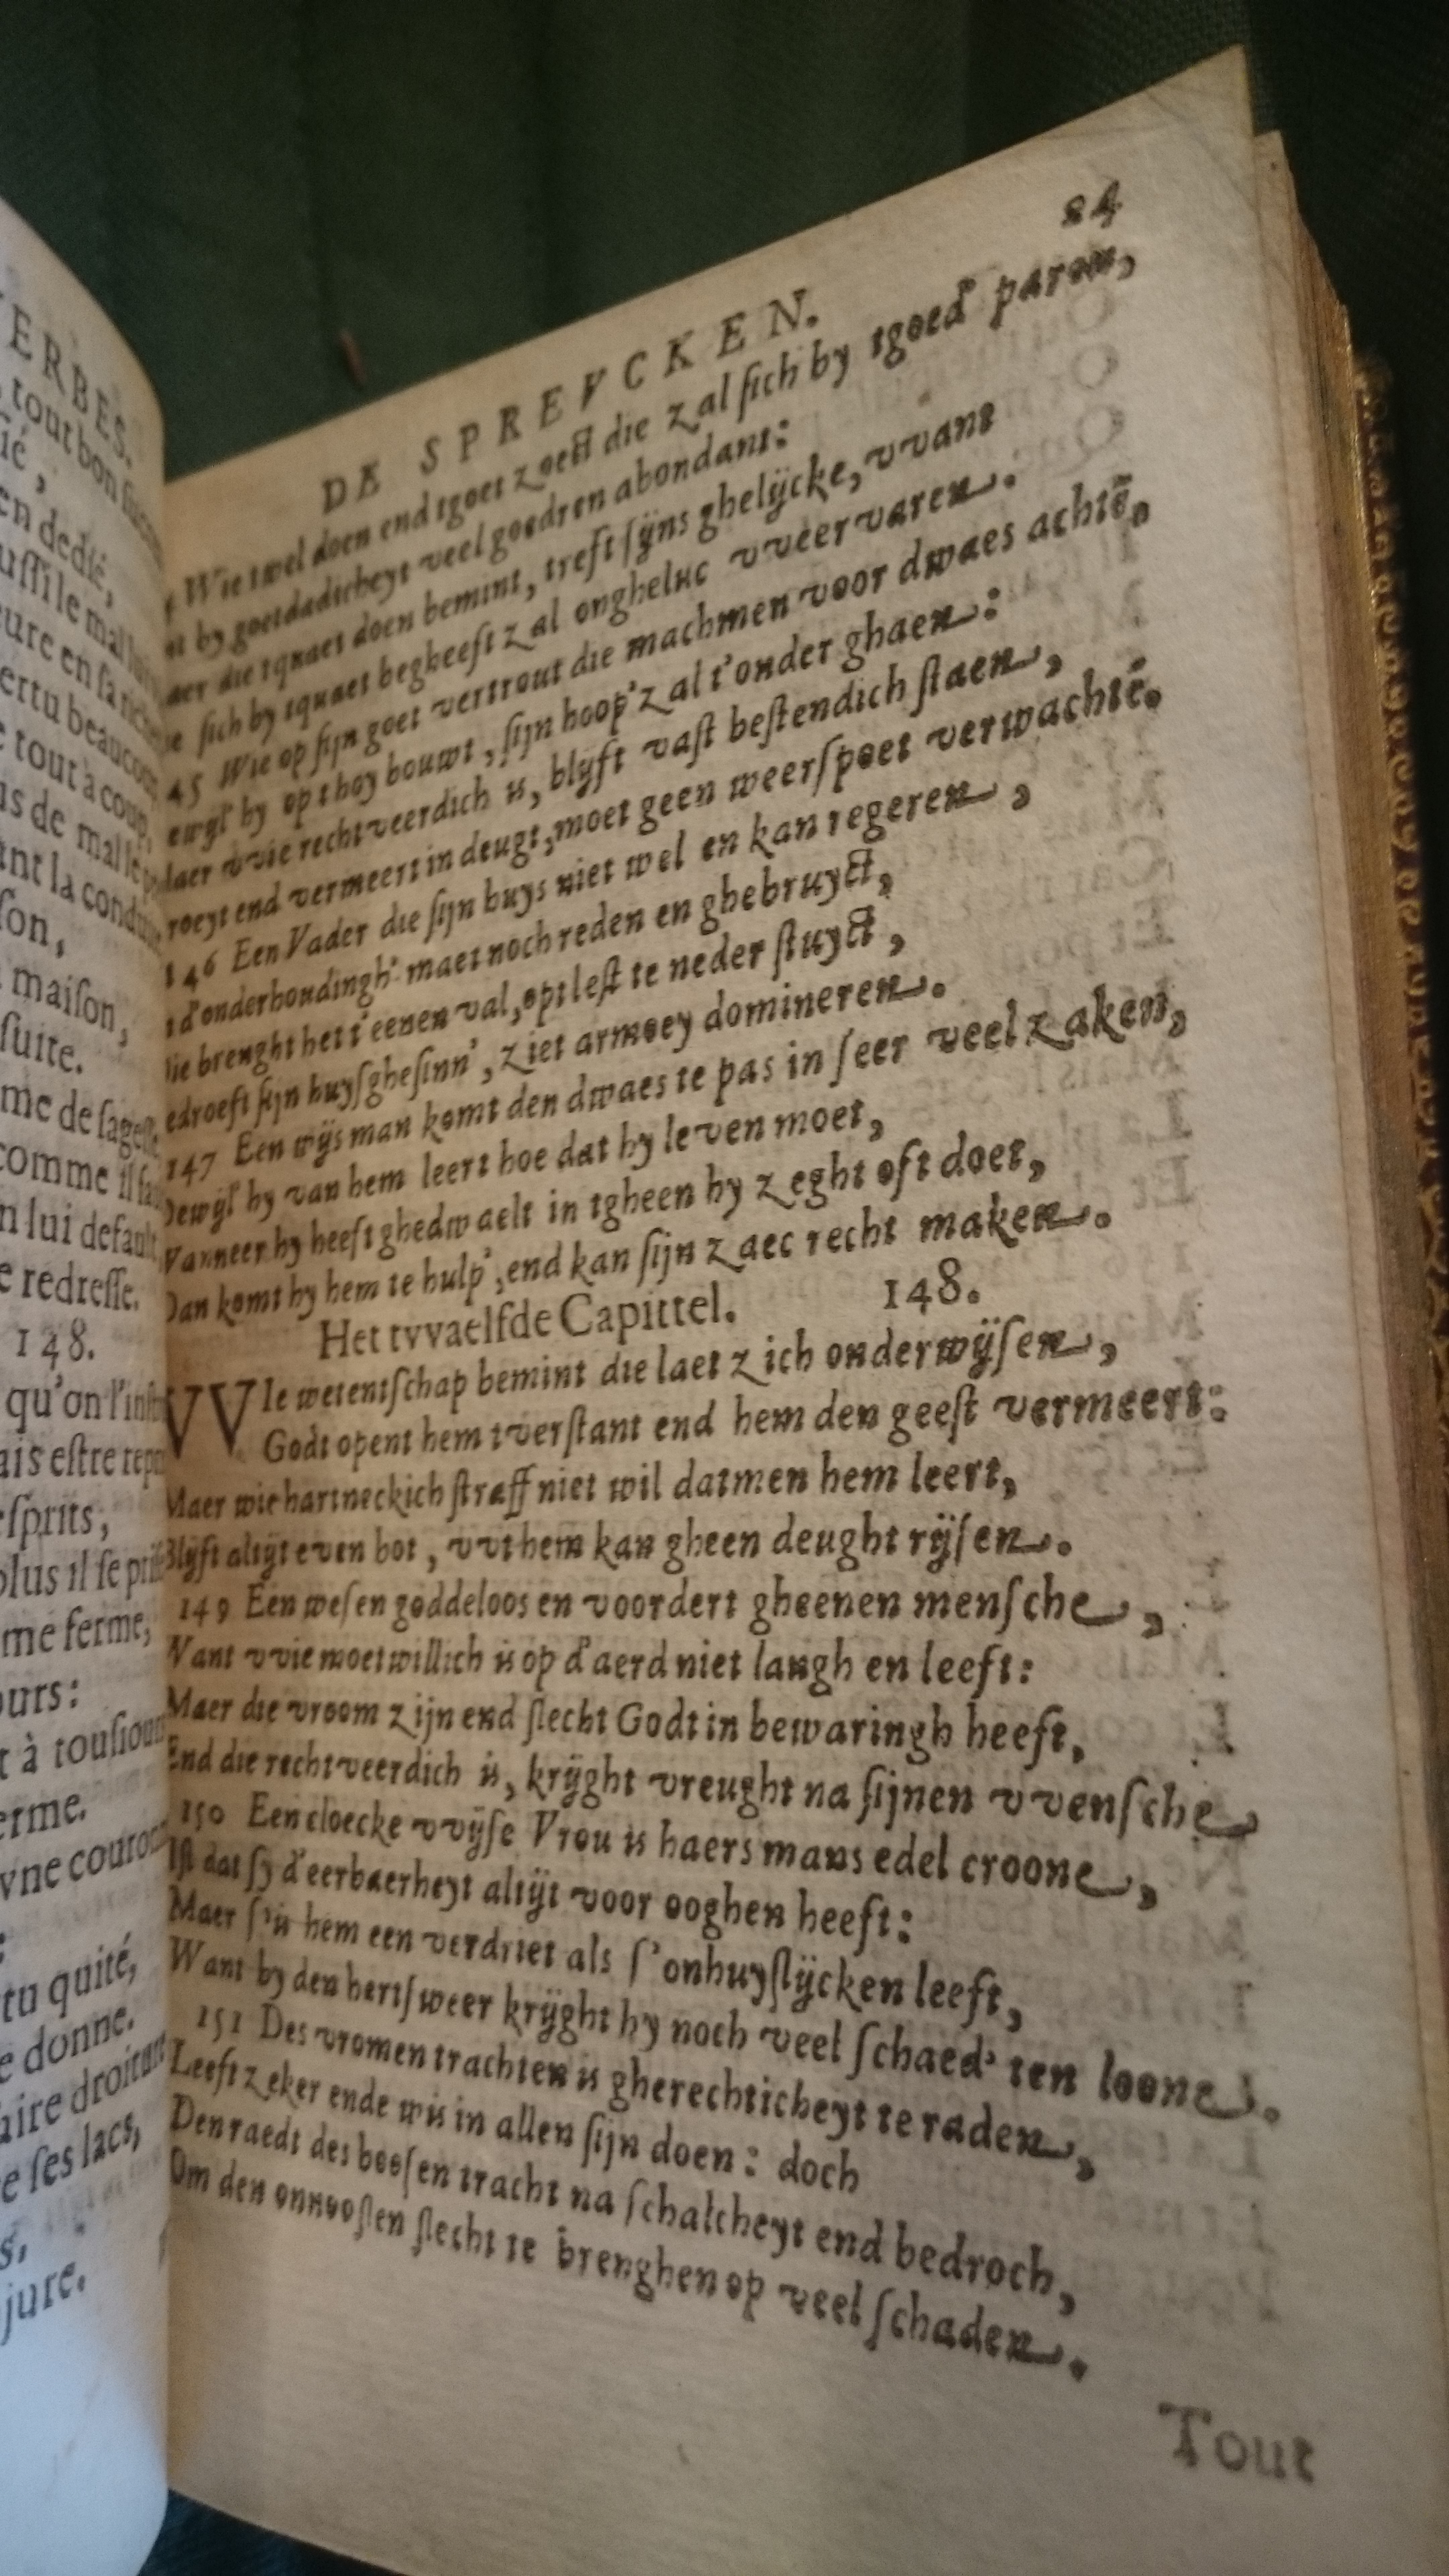 ERBES.
tout bon
ié,
en dedié,
le mal
ure en sa
ertu beaucoup
tout à coup,
us de mal
ant la
son,
maison,
suite.
me de sagesse
comme il
n lui default
e redresse.
148.
qu'on l'
ais estre
esprits,
plus il se
me ferme,
ours:
t à tousiours
erme.
vne
:
tu quité,
e donne.
aire
e ses lacs,
s,
jure.
84
DE SPREVCKEN.
Wie twel doen end tgoet zoect die zal sich by tgoed' paren,
by goetdadicheyt veel goedren abondant:
aer die tquaet doen bemint, treft sijns ghelijcke, vvant
sich by tquaet begheeft zal ongheluc vveervaren.
45 Wie op sijn goet vertrout die machmen voor dwaes achtē,
ewijl' hy op thoy bouwt, sijn hoop' zal t'onder ghaen:
aer vvie rechtveerdich is, blijft vast bestendich staen,
roeyt end vermeert in deugt, moet geen weerspoet verwachtē.
146 Een Vader die sijn huys niet wel en kan regeren,
d'onderhoudingh' maet noch reden en ghebruyct,
ie brenght het t'eenen val, opt lest te neder stuyct,
edroeft sijn huysghesinn', ziet armoey domineren.
147 Een wijs man komt den dwaes te pas in seer veel zaken,
Dewijl' hy van hem leert hoe dat hy leven moet,
Wanneer hy heeft ghedwaelt in tgheen hy zeght oft doet,
Dan komt hy hem te hulp', end kan sijn zaec recht maken.
Het tvvaelfde Capittel. 148.
WIe wetentschap bemint die laet zich onderwijsen,
Godt opent hem tverstant end hem den geest vermeert:
Maer wie hartneckich straff niet wil datmen hem leert,
Blijft altijt even bot, vvt hem kan gheen deught rijsen.
149 Een wesen goddeloos en voordert gheenen mensche,
Want vvie moetwillich is op d'aerd niet langh en leeft:
Maer die vroom zijn end slecht Godt in bewaringh heeft,
End die rechtveerdich is, krijght vreught na sijnen vvensche
150 Een cloecke vvijse Vrou is haers mans edel croone,
Ist dat sy d'eerbaerheyt altijt voor ooghen heeft:
Maer s'is hem een verdriet als s'onhuyslijcken leeft,
Want by den hertsweer krijght hy noch veel schaed' ten loone.
151 Des vromen trachten is gherechticheyt te raden,
Leeft zeker ende wis in allen sijn doen: doch
Den raedt des boosen tracht na schalcheyt end bedroch,
Om den onnooslen slecht te brenghen op veel schaden.
Tout